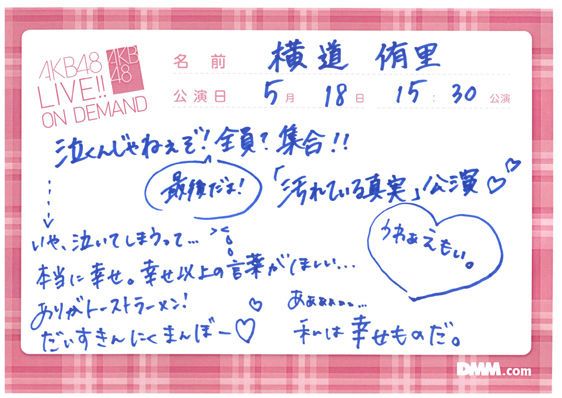 AKB48
LIVE!!
ON DEMAND
AKB
48
名前 横道 侑里
公演日 5月 18日 15:30公演
泣くんじゃねぇぞ!全員?集合!!
最後だよ!
「汚れている真実」公演
いや、泣いてしまうって...
本当に幸せ。幸せ以上の言葉がほしい...
うわぁえもい。
ありがトーストラーメン!
だいすきんにくまんぼー
あぁぁぁ...
私は幸せものだ。
DMM.com